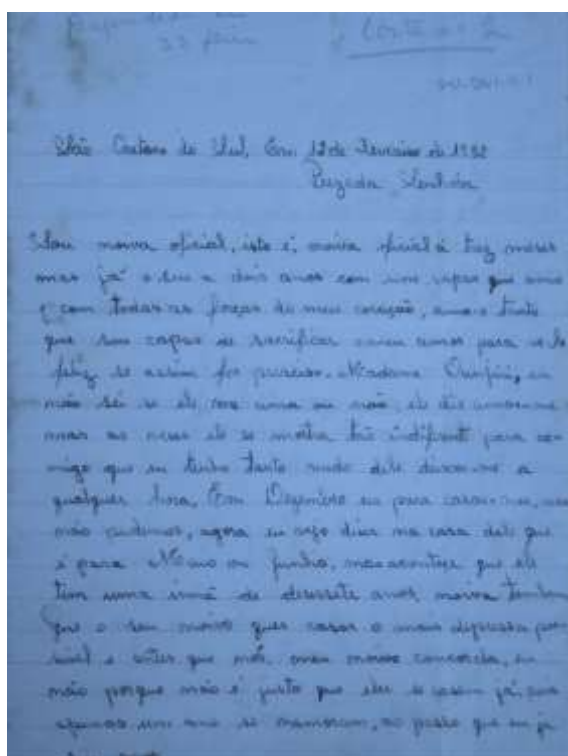 São Caetano do Sul, Em 12 de Fevereiro de 1952
Prezada Senhora
Sou noiva oficial, isto é, noiva oficial á trez meses
mas já o sou a dois anos com um rapaz que amo
com todas as forças do meu coração, amo-o tanto
que sou capaz de sacrificar meu amor para ve-lo
feliz se assim for preciso. Madame eu
não sei se ele me ama ou não, ele diz
mas as vezes ele se mostra tão indiferente para co-
migo que eu tenho tanto medo dele deixar-me a
qualquer hora. Em Dezembro era para casar-mos,
não pudemos, agora eu ouço dizer na casa dele que
é para Maio ou Junho, mas acontece que ele
tem uma irmã de dezessete anos, noiva tambem
que o seu noivo quer casar o mais depressa pos-
sivel e antes que nós, meu noivo concorda, eu
não porque não é justo que eles se casem já,
apenas um ano se namoram, ao passo que eu já